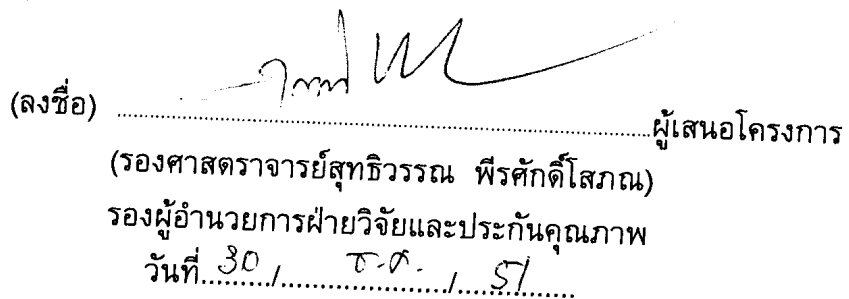 (ลงชื่อ) ........................................ผู้เสนอโครงการ
(รองศาสตราจารย์สุทธิวรรณ พีรศักดิ์โสภณ)
รองผู้อำนวยการฝ่ายวิจัยและประกันคุณภาพ
วันที่ 30 / ธ.ค. / 51